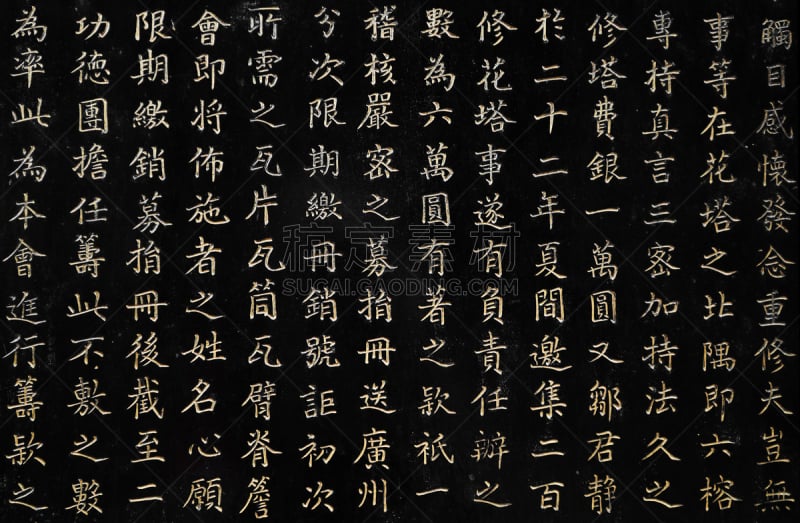 觸目感懷發念重修夫豈無
事等在花塔之北隅即六榕
專持真言三密加持法久之
修塔費銀一萬圓又鄒君静
於二十二年夏間邀集二百
修花塔事遂有負責任辦之
數為六萬圓有著之款祇一
稽核嚴密之募捐冊送廣州
兮次限期繳冊銷號詎初次
所需之瓦片瓦筒瓦臂脊簷
會即將佈施者之姓名心願
限期繳銷募捐冊後截至二
功德團擔任籌此不敷之數
為率此為本會進行籌款之
稿定素材
SUCAI.GAODING.COM